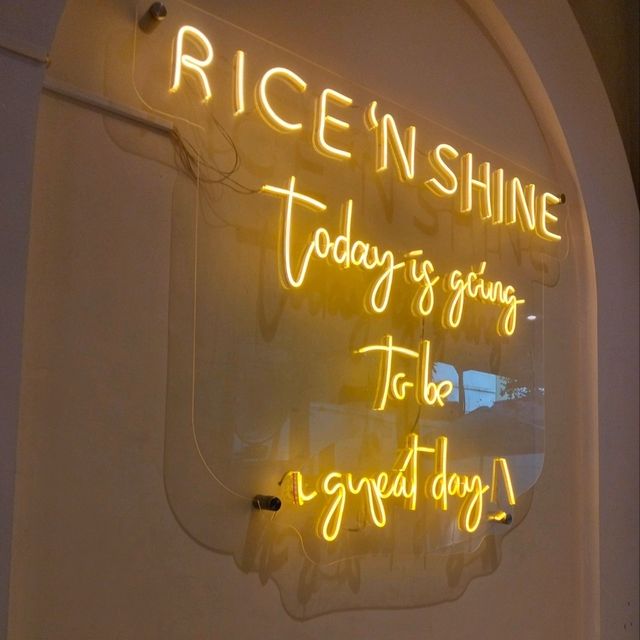 RICE 'N SHINE
Today is going
To be
a great day!